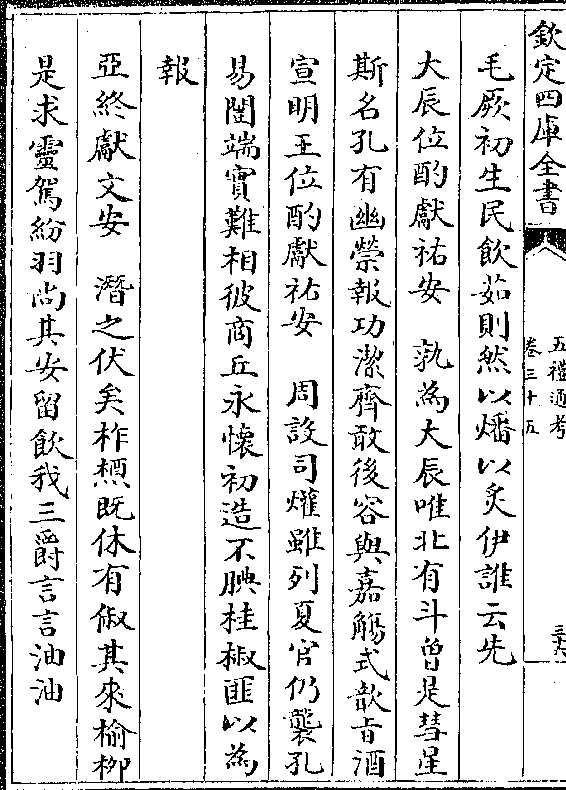 欽定四庫全書
五禮通考
卷三十五
三六
毛厥初生民飲茹則然以燔以炙伊誰云先
大辰位酌獻祐安　孰為大辰唯北有斗曾是彗星
斯名孔有幽禜報功潔齊敢後容與嘉觴式歆旨酒
宣明王位酌獻祐安　周設司爟雖列夏官仍襲孔
易閼端實難相彼商丘永懷初造不腆桂椒匪以為
報
亞終獻文安　潛之伏矣柞櫄既休有俶其來榆柳
是求靈駕紛羽尚其安留飲我三爵言言油油